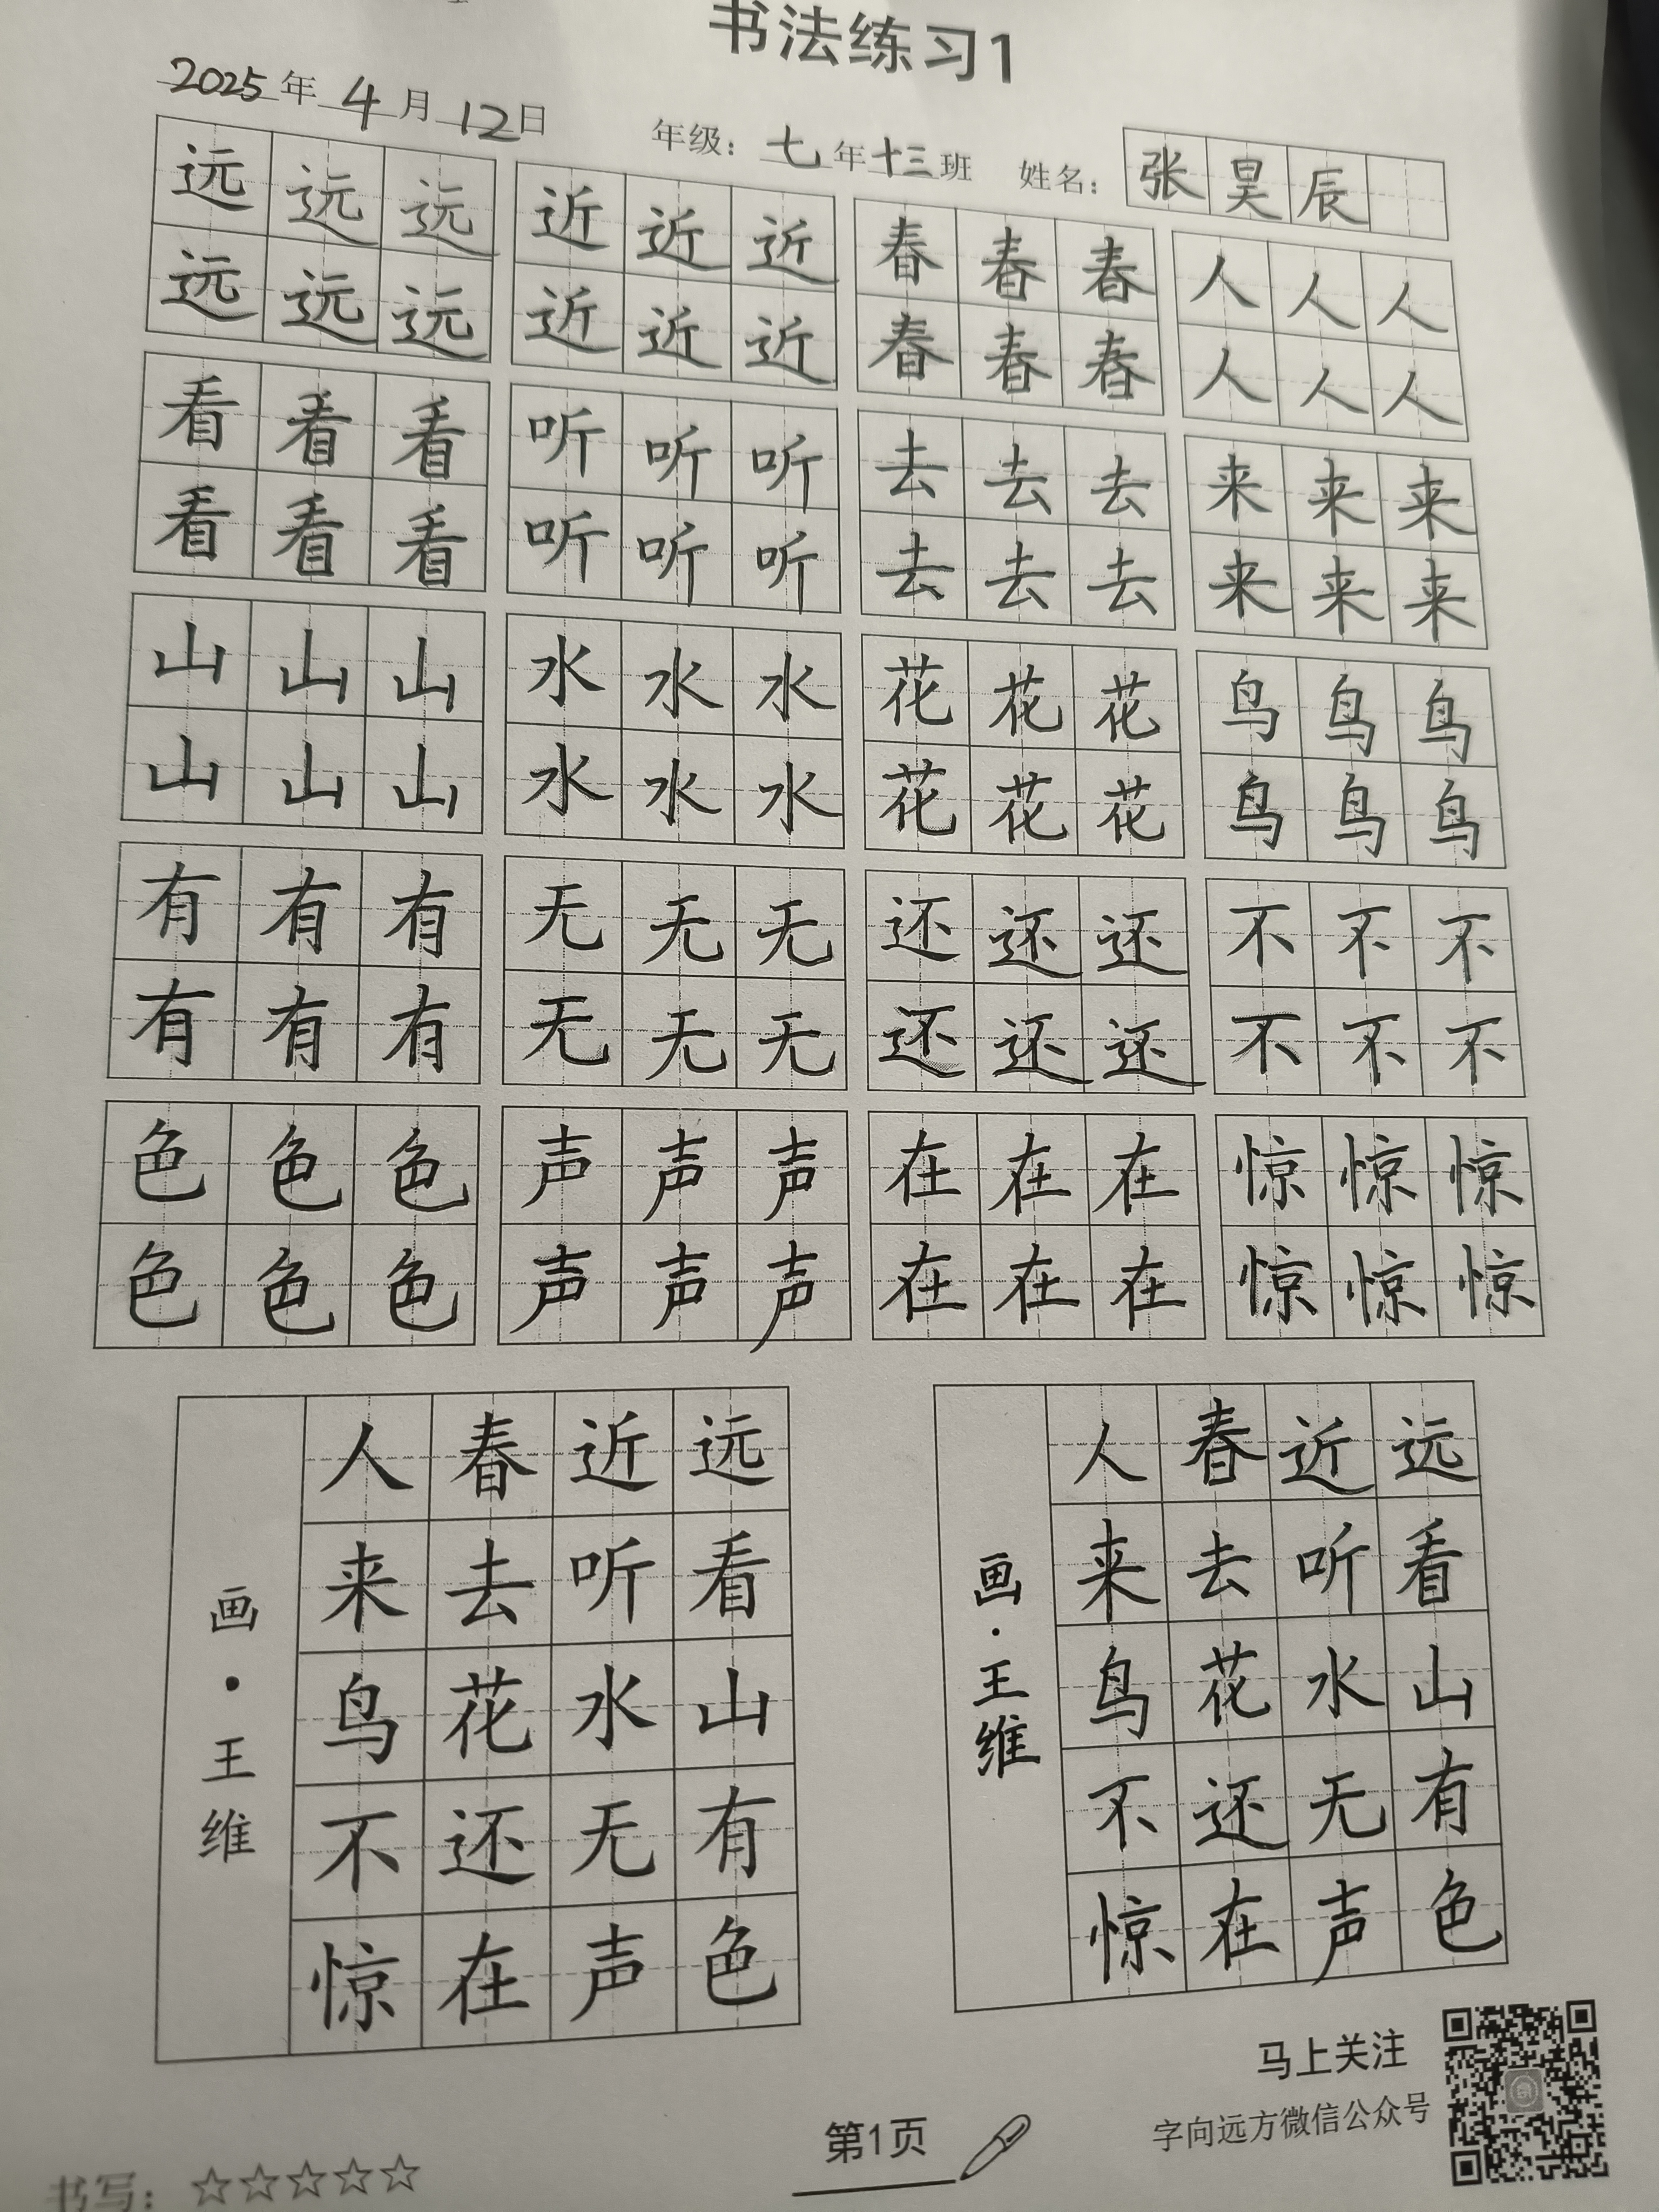 书法练习1
2025年4月12日 年级：七年十三班 姓名：张昊辰
远远远 近近近 春春春 人人人
远远远 近近近 春春春 人人人
看看看 听听听 去去去 来来来
看看看 听听听 去去去 来来来
山山山 水水水 花花花 鸟鸟鸟
山山山 水水水 花花花 鸟鸟鸟
有有有 无无无 还还还 不不不
有有有 无无无 还还还 不不不
色色色 声声声 在在在 惊惊惊
色色色 声声声 在在在 惊惊惊
远看山有色
近听水无声
春去花还在
人来鸟不惊
画·王维
远看山有色
近听水无声
春去花还在
人来鸟不惊
画·王维
马上关注
字向远方微信公众号
第1页
书写：☆☆☆☆☆